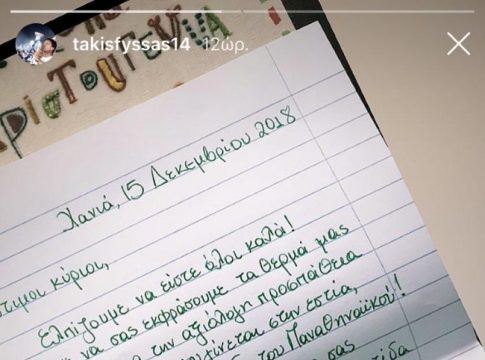 takisfyssas14 12ωρ.
ΡΙΣΤΟΥΓΕΝΝΑ
Χανιά, 15 Δεκεμβρίου 2018
κύριοι,
Ελπίζουμε να είστε όλοι καλά!
να σας εκφράσουμε τα θερμά μας
την αξιόλογη προσπάθεια
στην εστία,
του Παναθηναϊκού!
σας